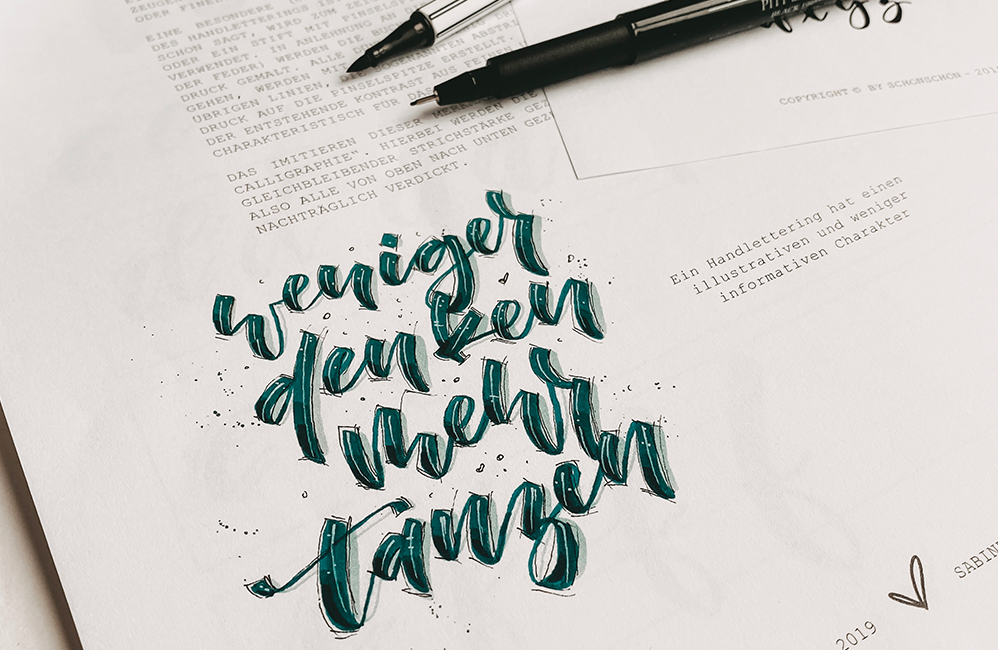 ZEUGEN
ODER FINE
BESONDERE
EINE
DES HANDLETTERINGS IST
SCHON SAGT, WIRD ZUR
ODER EIN STIFT MIT PINSELSPITZE
VERWENDET. IN ANLEHNUNG AN
DER FEDER) WERDEN DIE
DRUCK GEMALT. ALLE
GEHEN, WERDEN
ÜBRIGEN LINIEN, DIE SOGENANNTEN ABSTR
DRUCK AUF DIE PINSELSPITZE ERSTELLT.
DER ENTSTEHENDE KONTRAST AUS FEINEN
CHARAKTERISTISCH FÜR DAS
DAS IMITIEREN DIESER MERKMALE
CALLIGRAPHIE". HIERBEI WERDEN DIE
GLEICHBLEIBENDER STRICHSTÄRKE GEZ
ALSO ALLE VON OBEN NACH UNTEN GEZ
NACHTRÄGLICH VERDICKT.
PITT
BLACK
COPYRIGHT © BY SCHONSCHÖN - 201
Ein Handlettering hat einen
illustrativen und weniger
informativen Charakter
weniger
denken
mehr
tanzen
SABINE
2019